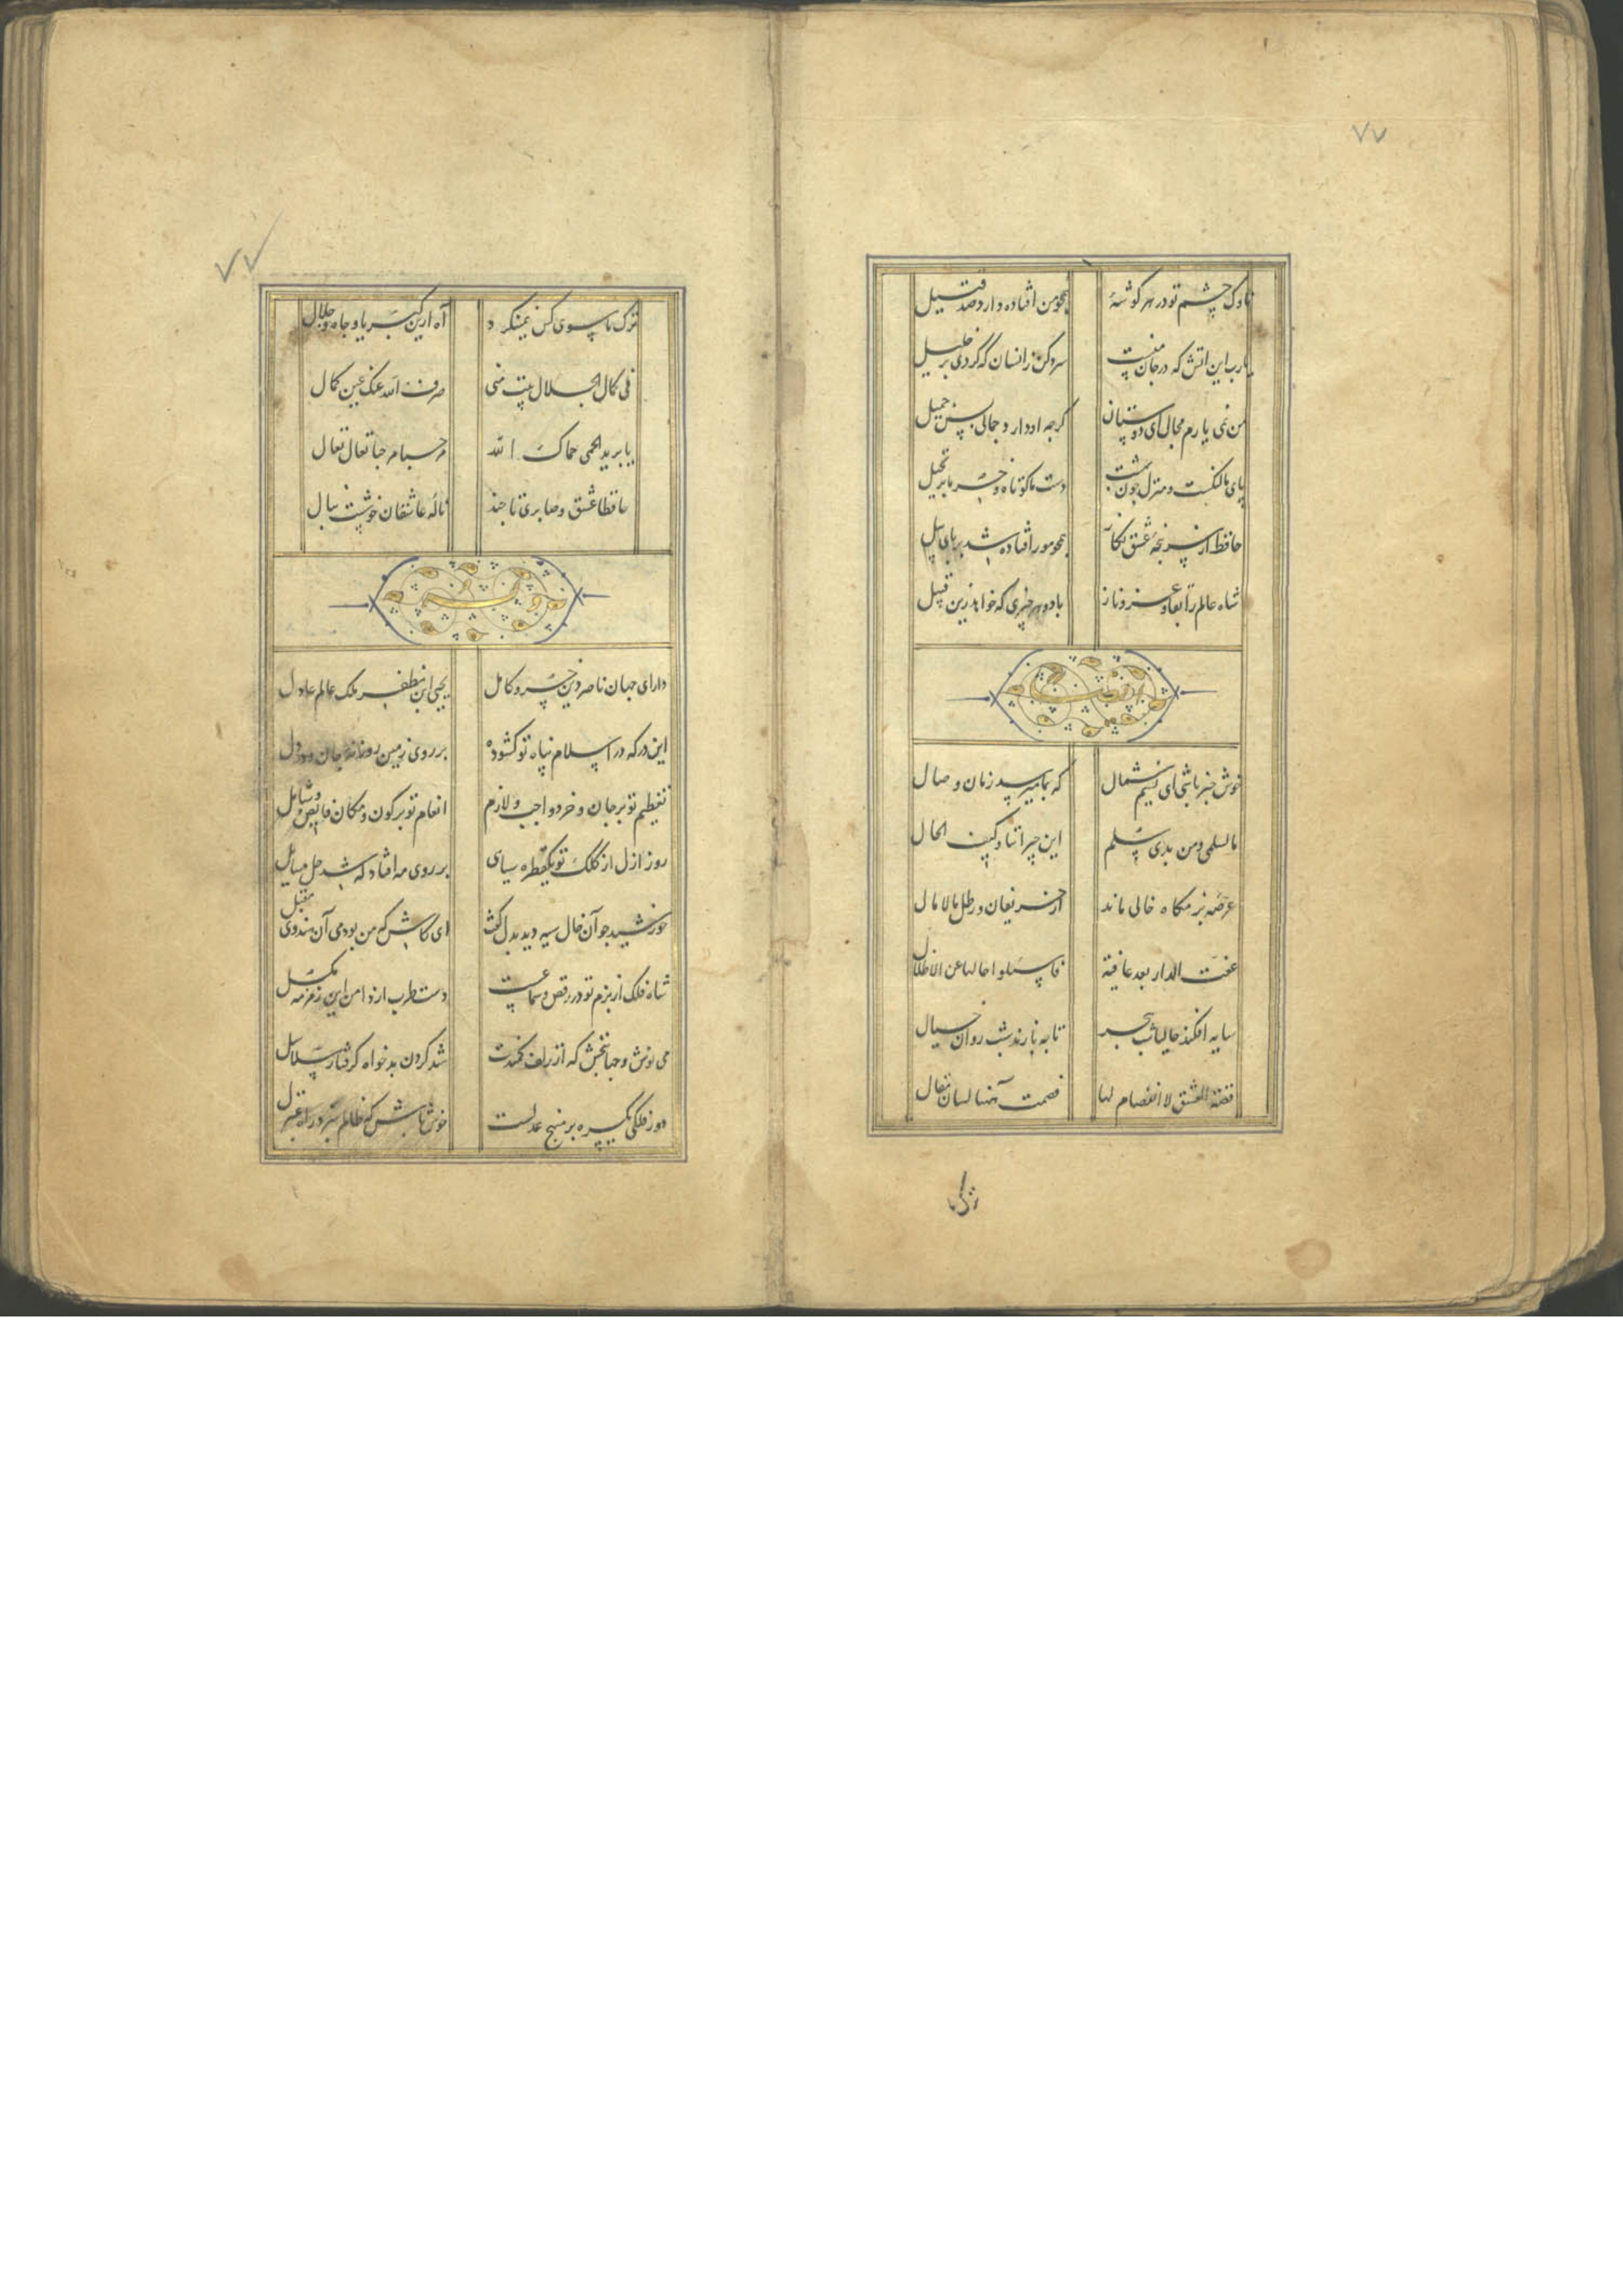 ٧٧
ناوک چشم تو در هر گوشهٔ همچو من افتاده دارد صد قتیل
یارب این اتش که در جان منست سرد کن زانسان که کردی بر خلیل
من نمی یابم مجال ای دوستان گرچه او دارد جمالی بس جمیل
پای ما لنگست و منزل چون بهشت دست ما کوتاه و خرما بر نخیل
حافظ از سرپنجهٔ عشق نگار همچو مور افتاده شد بر پای پیل
شاه عالم را بقا و عز و ناز باد و هر چیزی که خواهد زین قبیل
خوش خبر باشی ای نسیم شمال که بما میرسد زمان وصال
ما لسلمی و من بذی سلم این جیراننا و کیف الحال
عرصهٔ بزمگاه خالی ماند از حریفان و رطل مالامال
عفت الدار بعد عافیة فاسئلوا حالها عن الاطلال
سایه افکند حالیا شب هجر تا چه بازند شب روان خیال
قصة العشق لا انفصام لها فصمت منها لسان مقال
ترک ما
٧٧
ترک ما سوی کس نمینگرد آه ازین کبریا و جاه و جلال
فی کمال الجلال بیت منی صرف الله عنک عین کمال
یا برید الحمی حماک الله مرحبا مرحبا تعال تعال
حافظا عشق و صابری تا چند نالهٔ عاشقان خوشست بنال
دارای جهان ناصر دین خسرو کامل یحیی ابن مظفر ملک عالم عادل
این درکه در اسلام پناه تو کشوده بر روی زمین روزنهٔ جان و در دل
تعظیم تو بر جان و خرد واجب و لازم انعام تو بر کون و مکان فایض و شامل
روز ازل از کلک تو یکقطره سیاهی بر روی مه افتاد که شد حل مسائل
خورشید چو آن خال سیه دید بدل گفت ای کاش که من بودمی آن هندوی مقبل
شاه فلک از بزم تو در رقص و سماعست دست طرب از دامن این زمزمه مگسل
می نوش و جهانبخش که از زلف کمندت شد گردن بدخواه گرفتار سلاسل
دور فلکی یکسره بر منهج عدلست خوش باش که ظالم نبرد راه بمنزل